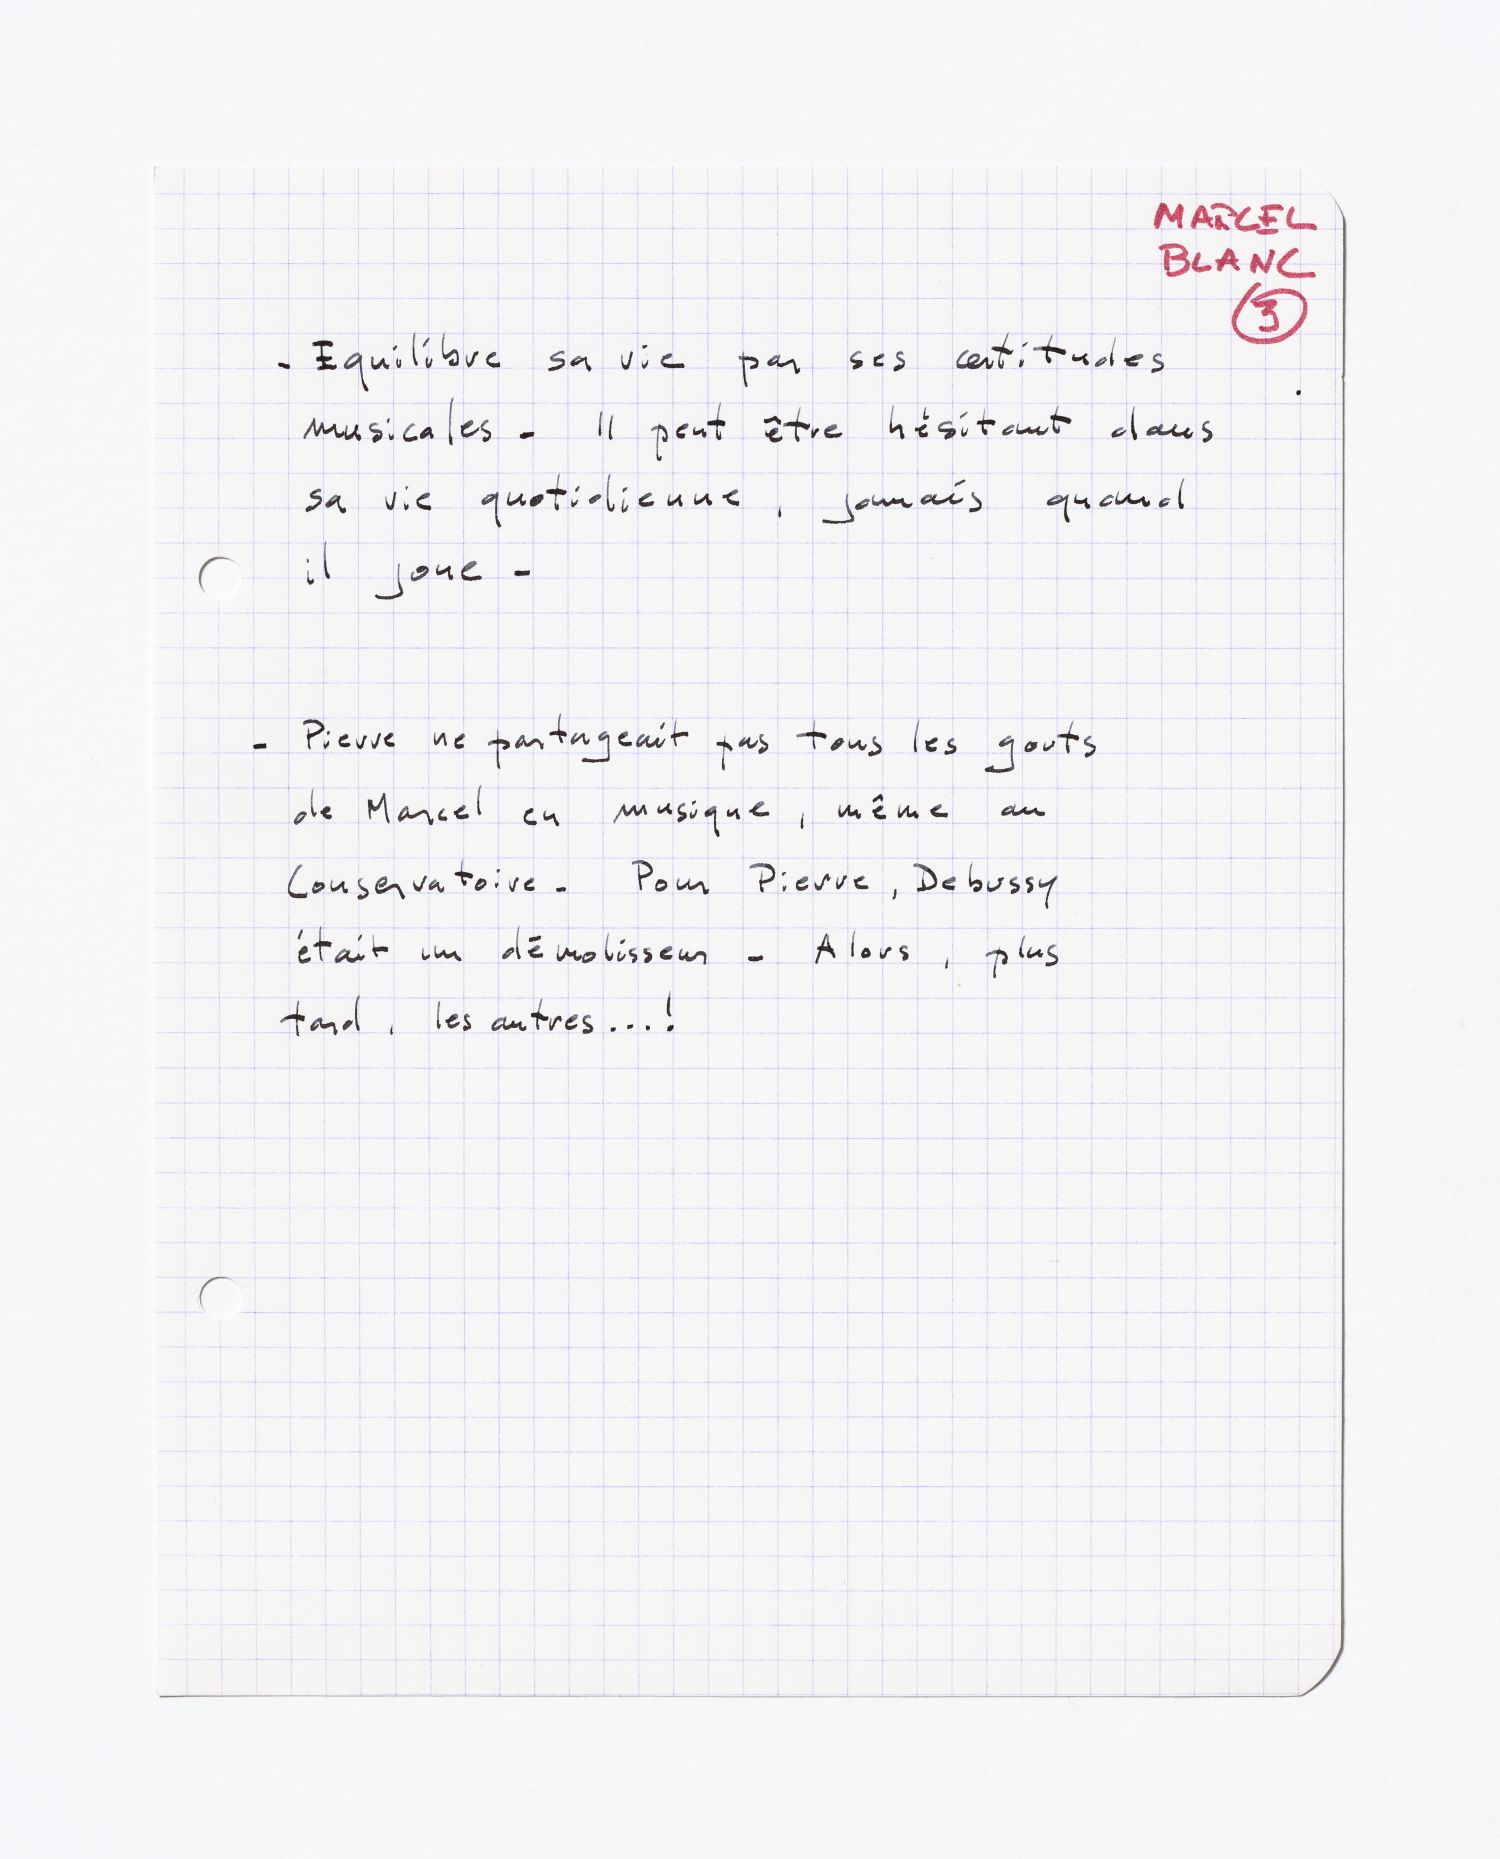 MARCEL
BLANC
3
- Equilibre sa vie par ses certitudes
musicales - Il peut être hésitant dans
sa vie quotidienne, jamais quand
il joue -
- Pierre ne partageait pas tous les gouts
de Marcel en musique, même au
Conservatoire - Pour Pierre, Debussy
était un démolisseur - Alors, plus
tard, les autres...!